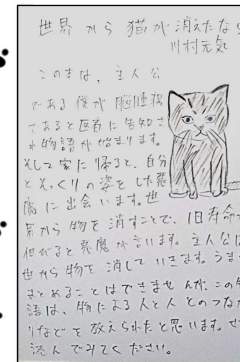 世界から猫が消えたな
川村元気
この本は、主人公
である僕が脳腫瘍
であると医者に告知さ
れ物語が始まります。
そして家に帰ると、自分
とそっくりの姿をした悪
魔に出会います。世
界から物を消すことで、1日寿命が
伸びると悪魔が言います。主人公は
世から物を消していきます。うま
まとめることはできませんが、この
語は、物による人と人とのつな
りなどを教えられたと思います。
読んでみてください。